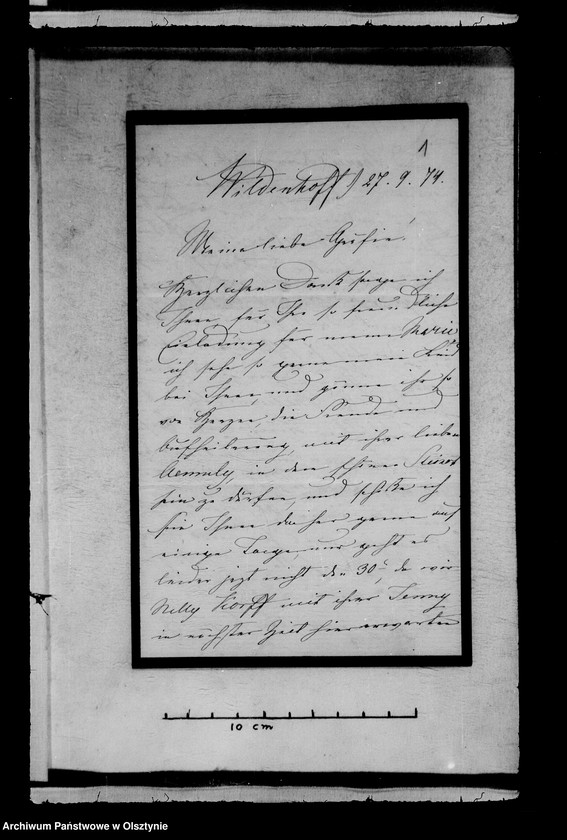 1
Wildenhoff, 27. 9. 74.
Meine liebe Gräfin!
Herzlichsten Dank sage ich
Ihnen, für Ihre so freundliche
Einladung für meine Marie
ich sehe so gerne mein Kind
bei Ihnen, und gönne ihr so
von Herzen, die Freude und
mit ihrer lieben
in dem schönen
sein zu dürfen, und schicke ich
sie Ihnen daher gerne auf
einige Tage, nur geht es
leider jetzt nicht den 30., da wir
Nelly Korff mit ihrer Jenny
in nächster Zeit hier erwarten
10 cm
Archiwum Państwowe w Olsztynie